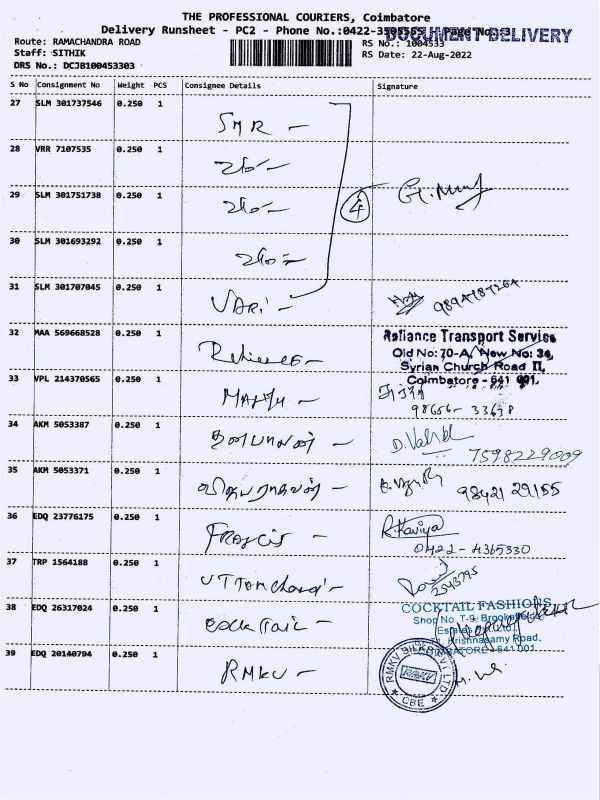 THE PROFESSIONAL COURIERS, Coimbatore
Delivery Runsheet - PC2 - Phone No.:0422-3505555, Page No.:3
DOCUMENT DELIVERY
Route: RAMACHANDRA ROAD
RS No.: 1004533
Staff: SITHIK
RS Date: 22-Aug-2022
DRS No.: DCJB100453303
S No Consignment No Weight PCS Consignee Details Signature
27 SLM 301737546 0.250 1
SMR -
28 VRR 7107535 0.250 1
29 SLM 301751738 0.250 1
4
30 SLM 301693292 0.250 1
31 SLM 301707045 0.250 1
VARi -
32 MAA 569668528 0.250 1
Reliance -
Reliance Transport Service
Old No: 70-A, New No: 34,
Syrian Church Road II,
Coimbatore - 641 001.
33 VPL 214370565 0.250 1
98656-33678
34 AKM 5053387 0.250 1
தனபாலன் -
7598229009
35 AKM 5053371 0.250 1
விஜயராகவன் -
98421 29155
36 EDQ 23776175 0.250 1
FRANCIS -
R.Kaviya
0422-4365330
37 TRP 1564188 0.250 1
UTTamchand -
2543795
38 EDQ 26317024 0.250 1
COCKTAIL -
COCKTAIL FASHIONS
Shop No. T-9, Brookefields
Krishnasamy Road,
COIMBATORE - 641 001
39 EDQ 20140794 0.250 1
RMKV -
RMKV SILKS PVT LTD
RMKV
CBE